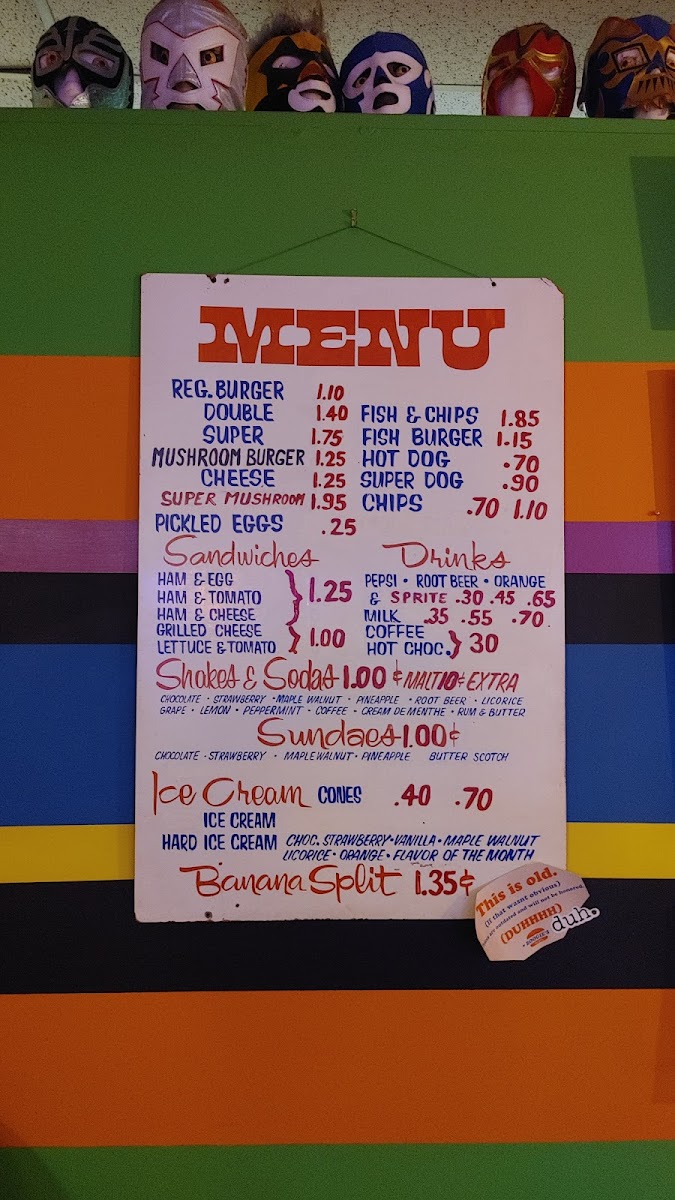 MENU
REG. BURGER 1.10
DOUBLE 1.40
SUPER 1.75
MUSHROOM BURGER 1.25
CHEESE 1.25
SUPER MUSHROOM 1.95
PICKLED EGGS .25
FISH & CHIPS 1.85
FISH BURGER 1.15
HOT DOG .70
SUPER DOG .90
CHIPS .70 1.10
Sandwiches
HAM & EGG
HAM & TOMATO 1.25
HAM & CHEESE
GRILLED CHEESE 1.00
LETTUCE & TOMATO
Drinks
PEPSI • ROOT BEER • ORANGE
& SPRITE .30 .45 .65
MILK .35 .55 .70
COFFEE
HOT CHOC. 30
Shakes & Sodas 1.00 ¢ MALT 10¢ EXTRA
CHOCOLATE • STRAWBERRY • MAPLE WALNUT • PINEAPPLE • ROOT BEER • LICORICE
GRAPE • LEMON • PEPPERMINT • COFFEE • CREAM DE MENTHE • RUM & BUTTER
Sundaes 1.00¢
CHOCOLATE • STRAWBERRY • MAPLE WALNUT • PINEAPPLE BUTTER SCOTCH
Ice Cream CONES .40 .70
ICE CREAM
HARD ICE CREAM CHOC. STRAWBERRY • VANILLA • MAPLE WALNUT
LICORICE • ORANGE • FLAVOR OF THE MONTH
Banana Split 1.35¢
This is old.
(if that wasnt obvious)
are outdated and will not be honored.
(DUHHHH)
duh.